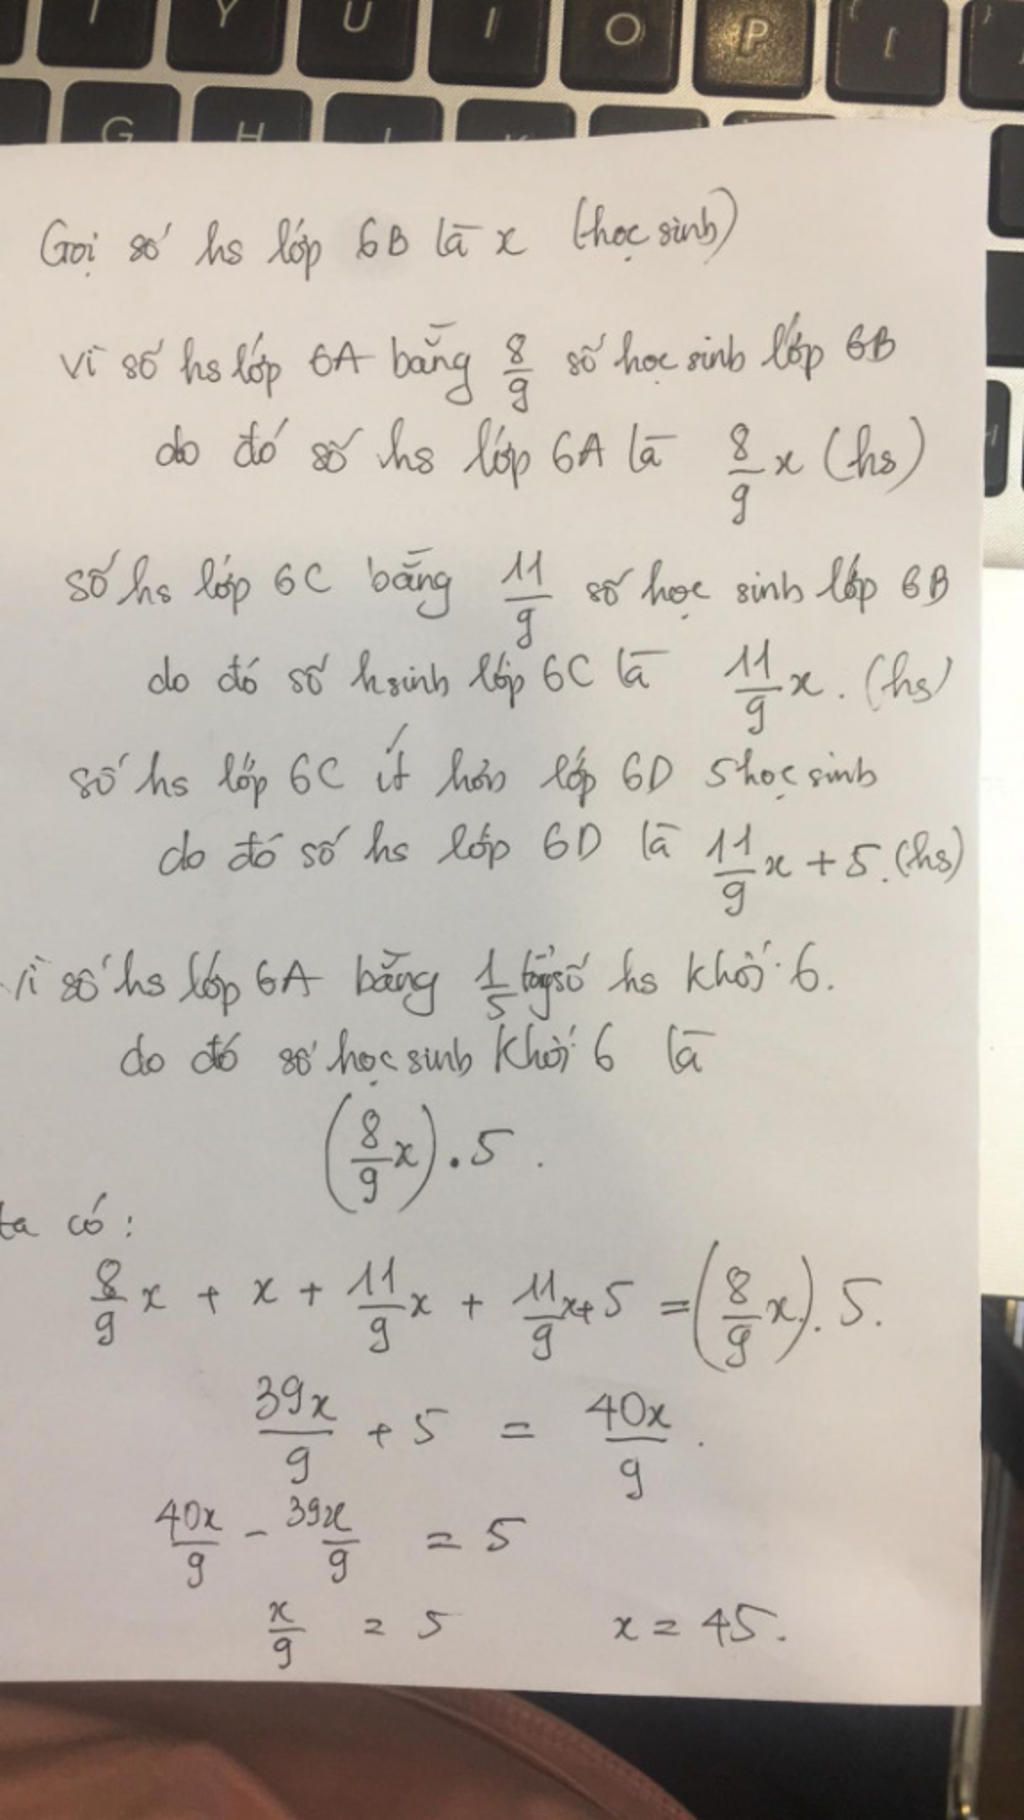 T Y U I O P { [ }
G H
Gọi số hs lớp 6B là x (học sinh)
Vì số hs lớp 6A bằng 8/9 số học sinh lớp 6B
do đó số hs lớp 6A là 8/9 x (hs)
số hs lớp 6C bằng 11/9 số học sinh lớp 6B
do đó số hsinh lớp 6C là 11/9 x. (hs)
số hs lớp 6C ít hơn lớp 6D 5 học sinh
do đó số hs lớp 6D là 11/9 x + 5. (hs)
Vì số hs lớp 6A bằng 1/5 tổng số hs khối 6.
do đó số học sinh khối 6 là
(8/9 x) . 5.
ta có:
8/9 x + x + 11/9 x + 11/9 x + 5 = (8/9 x). 5.
39x/9 + 5 = 40x/9.
40x/9 - 39x/9 = 5
x/9 = 5 x = 45.